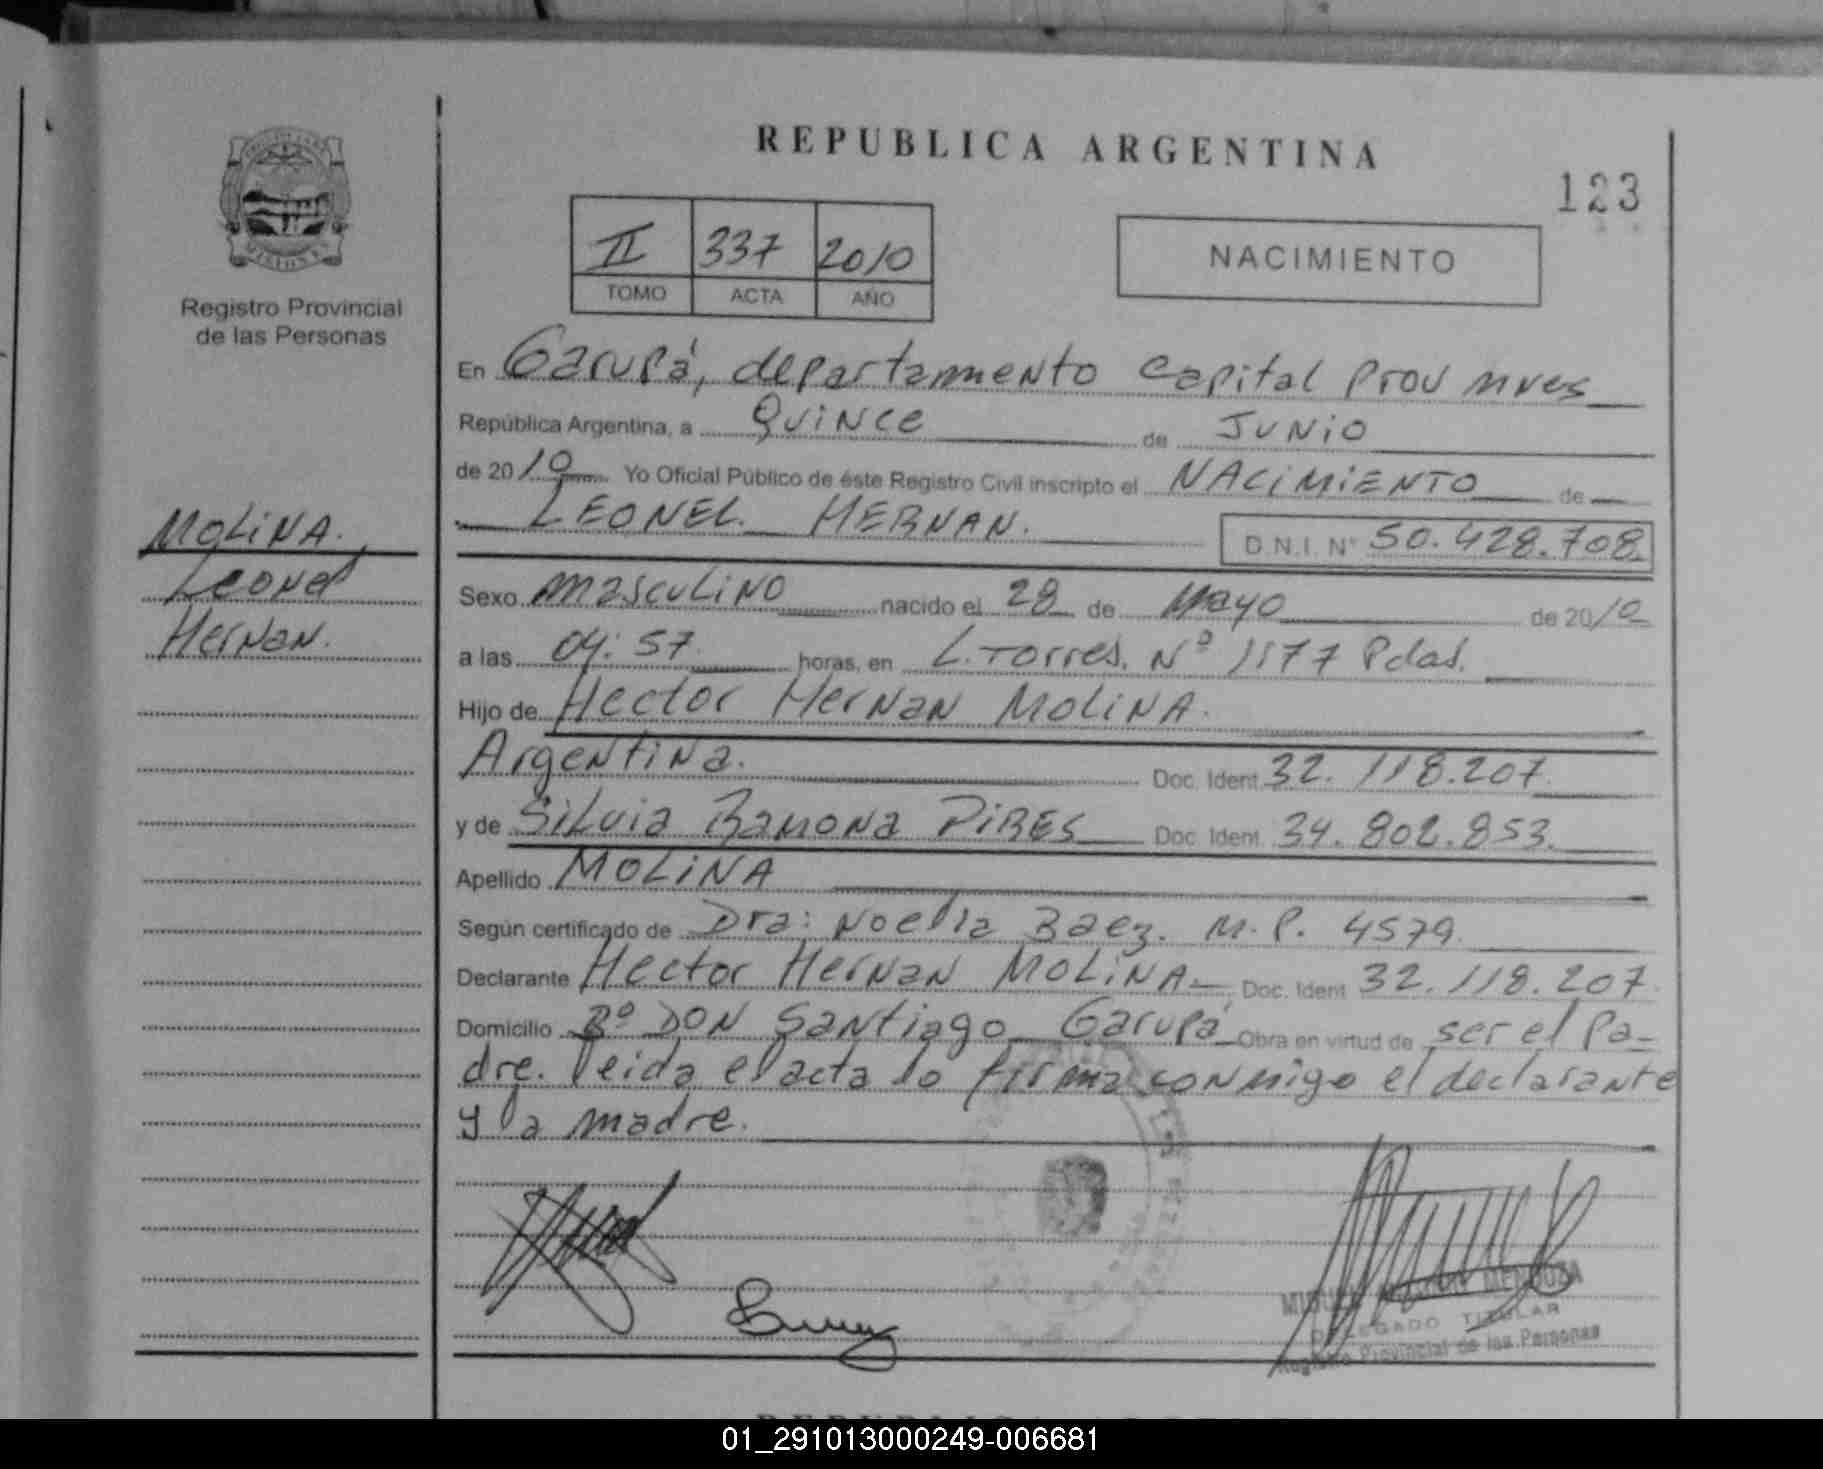 REPUBLICA ARGENTINA
123
II 337 2010
TOMO ACTA AÑO
NACIMIENTO
MISIONES
Registro Provincial
de las Personas
MOLINA.
Leonel
Hernan.
En Garupá, departamento Capital Prov mnes
República Argentina, a Quince de Junio
de 2010 Yo Oficial Público de éste Registro Civil inscripto el NACIMIENTO de
LEONEL HERNAN. D.N.I. N° 50.428.708
Sexo masculino nacido el 28 de Mayo de 2010
a las 04:57 horas, en L. Torres. Nº 1177 Pdas.
Hijo de Hector Hernan Molina.
Argentina. Doc. Ident. 32.118.207
y de Silvia Ramona PIRES Doc. Ident. 34.802.853.
Apellido MOLINA
Según certificado de Dra: Noelia Baez. M.P. 4579.
Declarante Hector Hernan MOLINA Doc. Ident. 32.118.207
Domicilio Bº DON Santiago Garupá Obra en virtud de ser el Pa-
dre. leida el acta lo firma conmigo el declarante
y la madre.
MENDOZA
DELEGADO TITULAR
Registro Provincial de las Personas
01_291013000249-006681